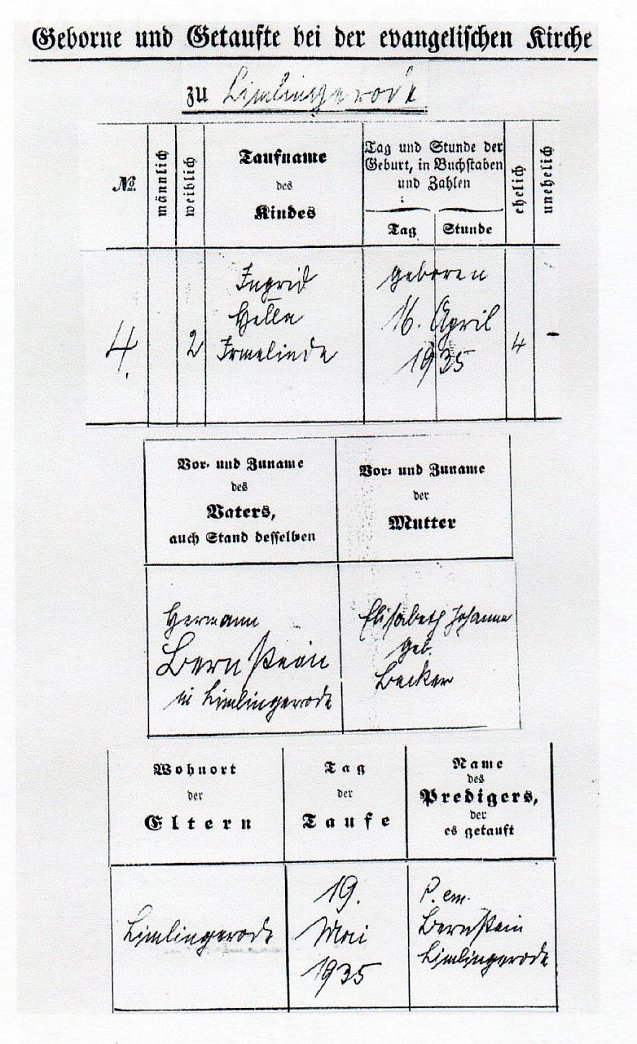 Geborne und Getaufte bei der evangelischen Kirche
zu Limlingerode
No.
männlich
weiblich
Taufname
des
Kindes
Tag und Stunde der
Geburt, in Buchstaben
und Zahlen
Tag
Stunde
ehelich
unehelich
4.
2
Ingrid
Hella
Irmelinde
geboren
16. April
1935
4
-
Vor- und Zuname
des
Vaters,
auch Stand desselben
Vor- und Zuname
der
Mutter
Hermann
Bernstein
in Limlingerode
Elisabeth Johanna
geb.
Becker
Wohnort
der
Eltern
Tag
der
Taufe
Name
des
Predigers,
der
es getauft
Limlingerode
19.
Mai
1935
P. em.
Bernstein
Limlingerode